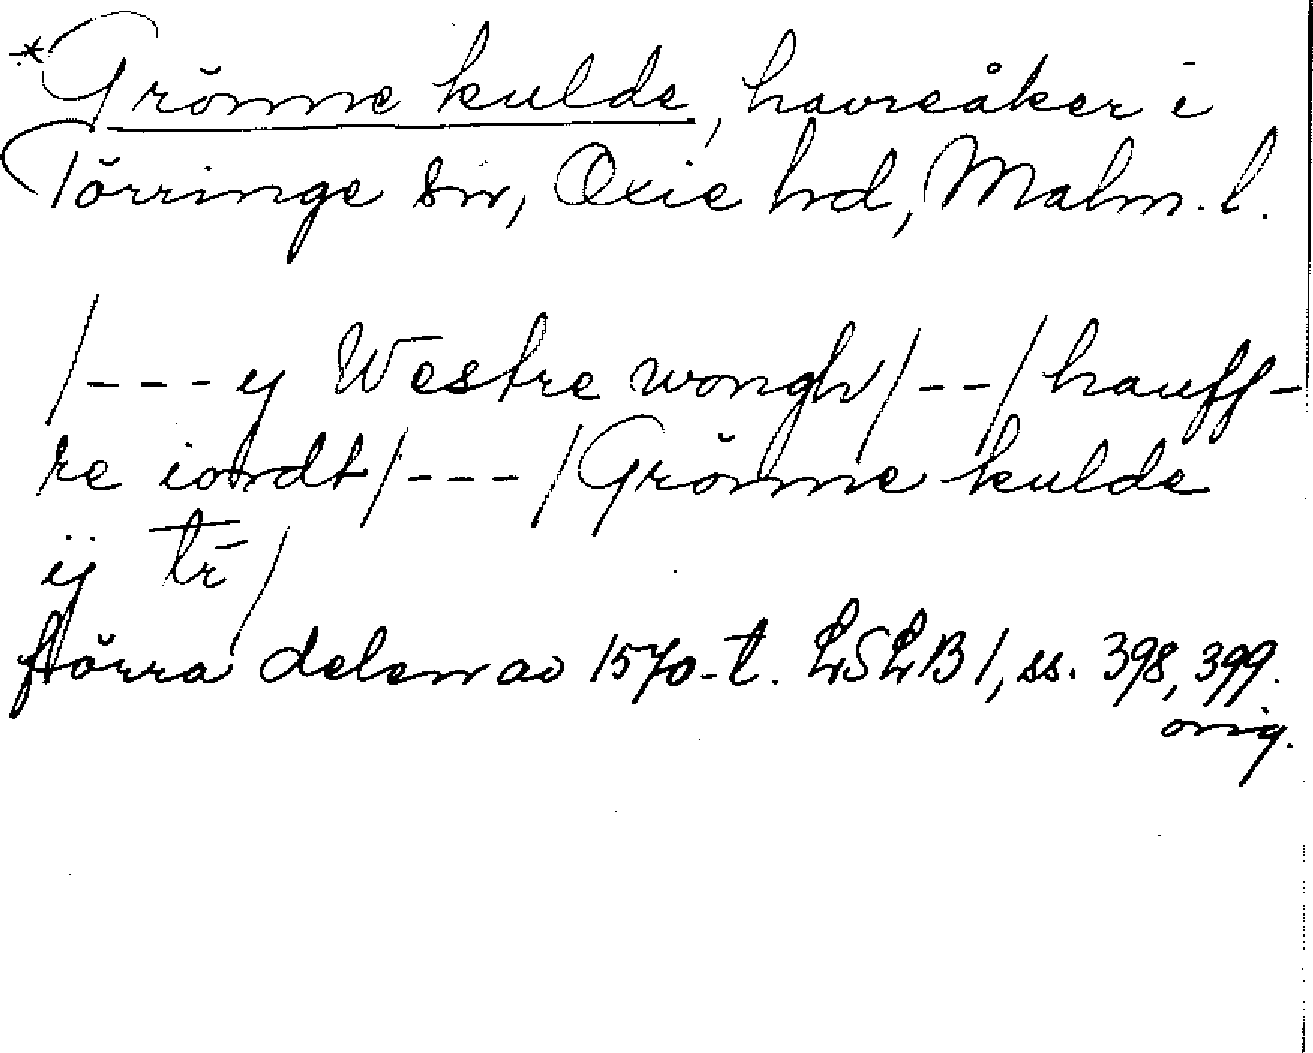 *Grönne kulde, havreåker i
Törringe sn, Oxie hd, Malm. l.
/---y Westre wongh/--/hauff-
re iordt/---/Grönne kulde
ij tr̄/
förra delen av 1570-t. LSLB 1, ss. 398, 399.
orig.